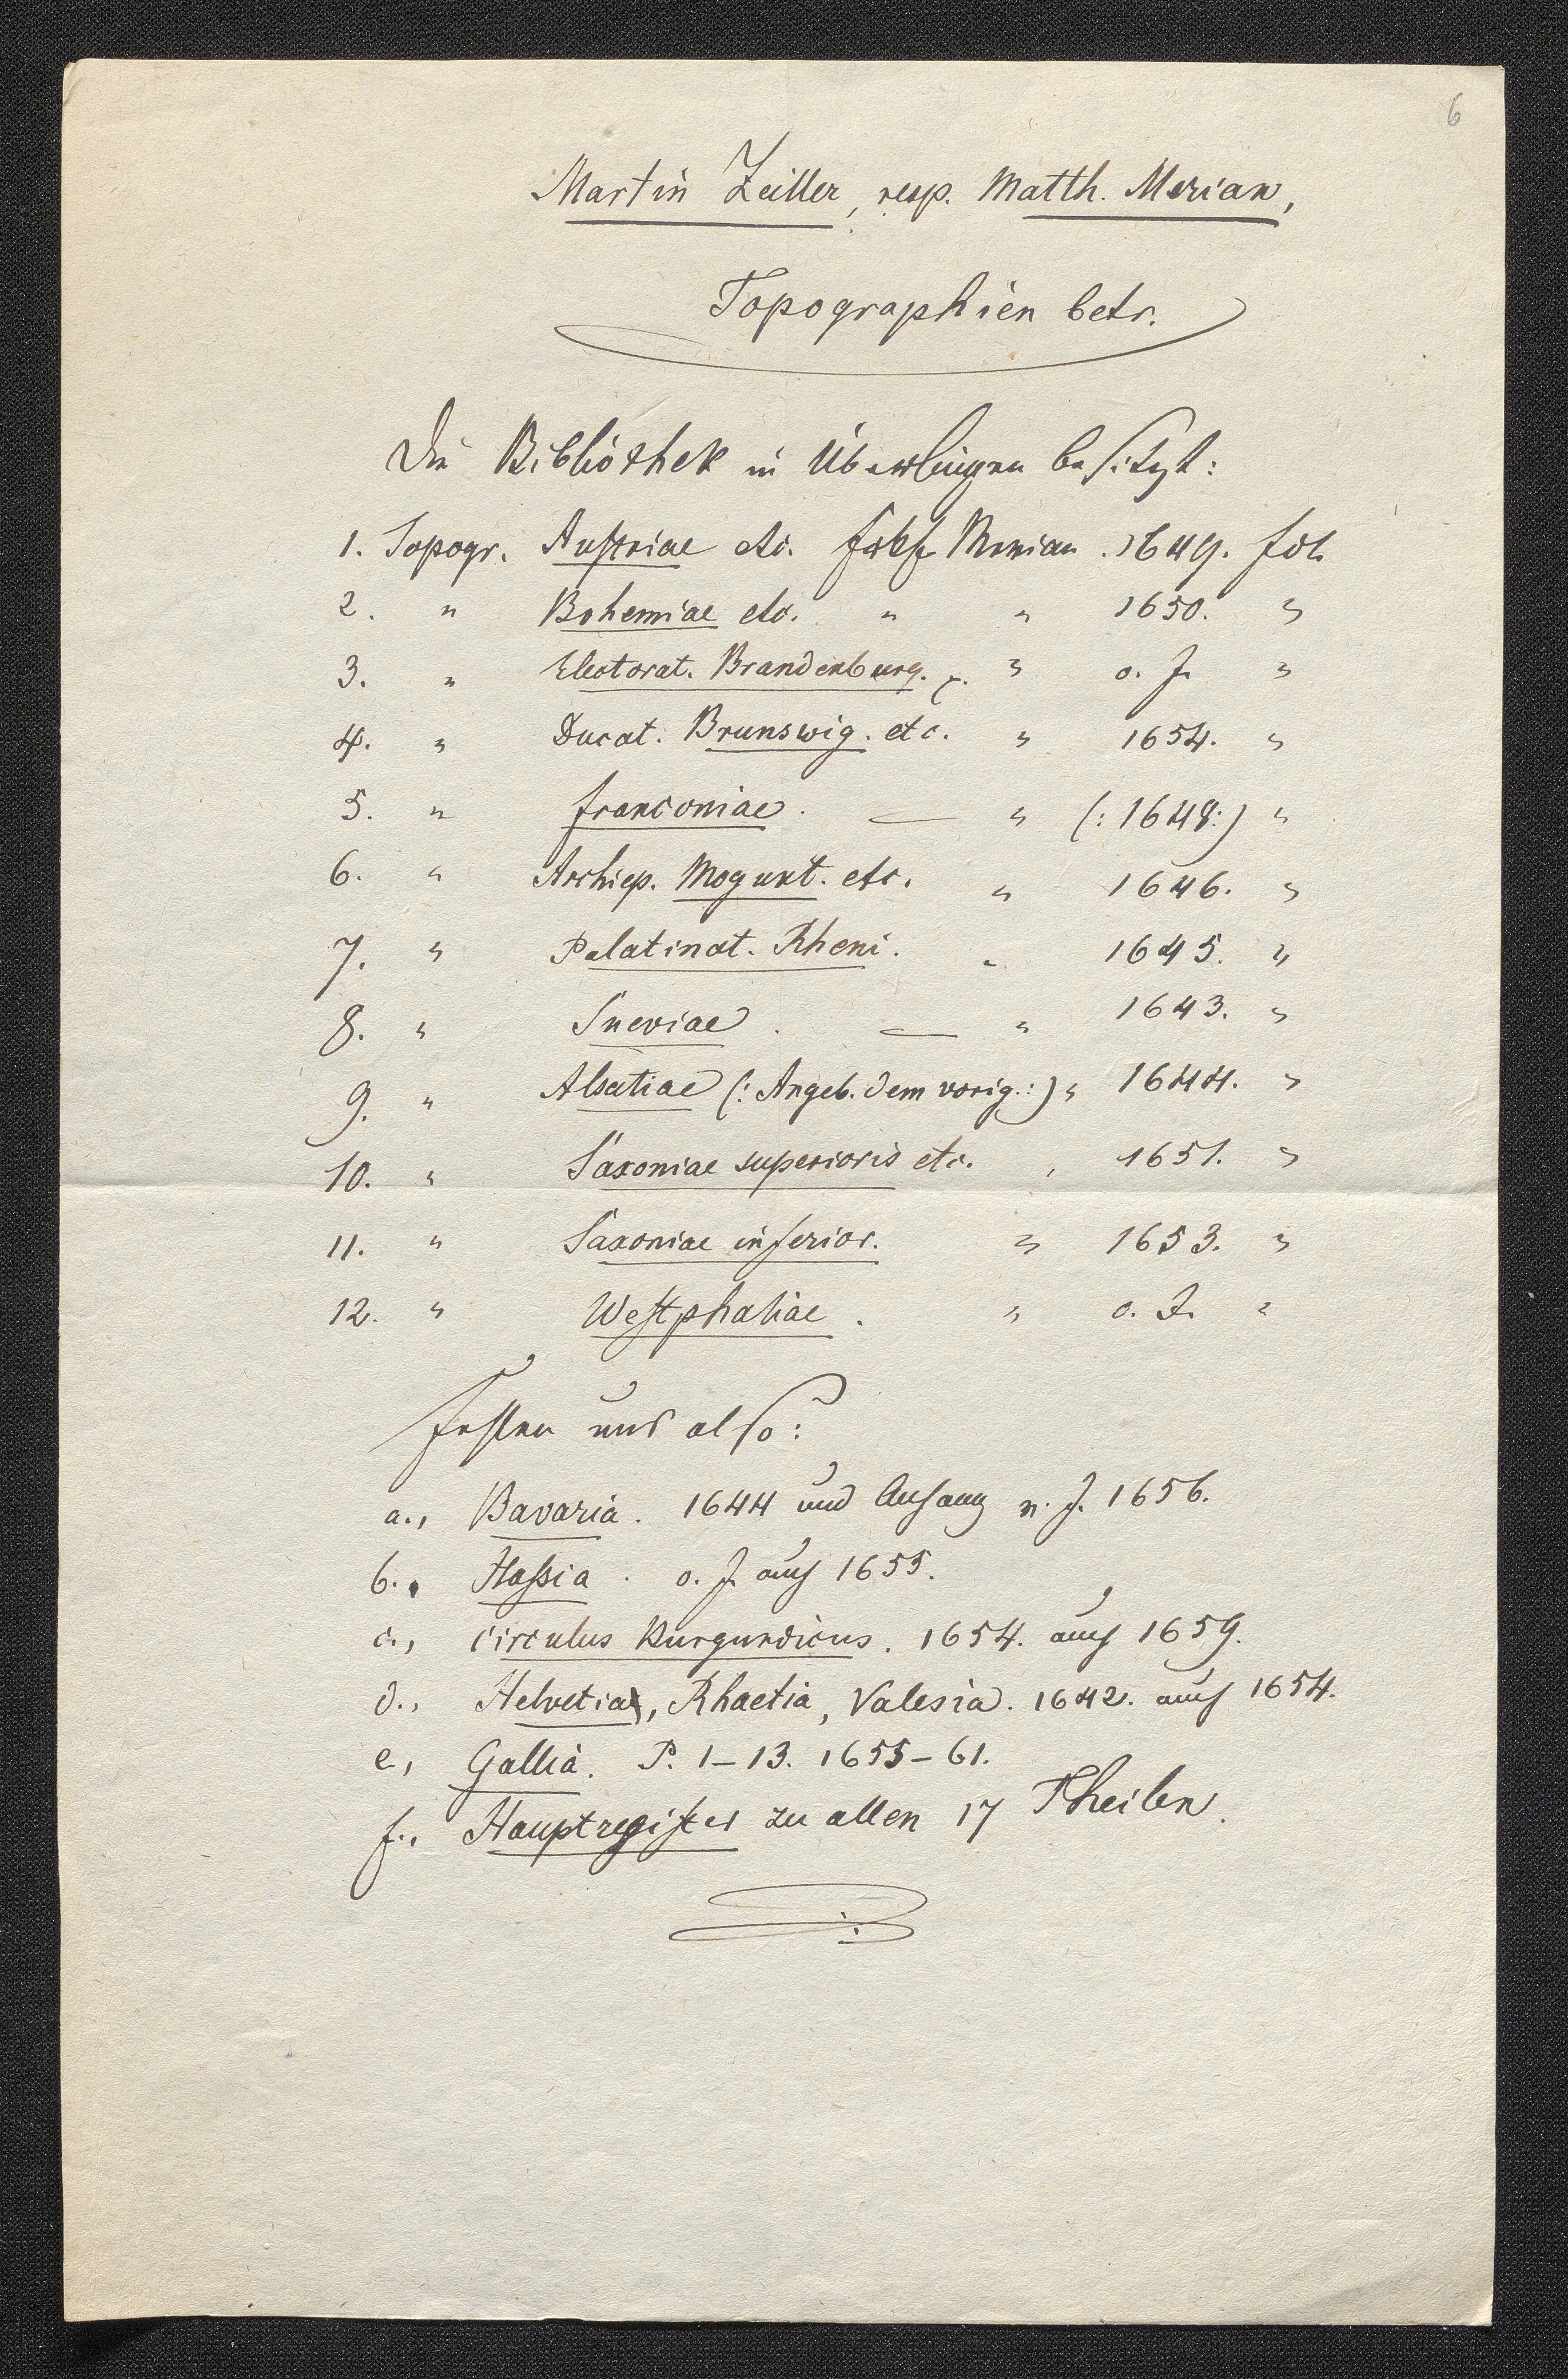 6
Martin Zeiller, resp. Matth. Merian,
Topographien betr.
Die Bibliothek in Überlingen besitzt:
1. Topogr. Austriae etc. Frkf. Merian. 1649. fol.
2. " Bohemiae etc. " " 1650. "
3. " Electorat. Brandenburg. " o. J. "
4. " Ducat. Brunswig. etc. " 1654. "
5. " Franconiae. — " (: 1648:) "
6. " Archiep. Mogunt. etc. " 1646. "
7. " Palatinat. Rheni. " 1645. "
8. " Sueviae. — " 1643. "
9. " Alsatiae (: Angeb. dem vorig.:) " 1644. "
10. " Saxoniae superioris etc. " 1651. "
11. " Saxoniae inferior. " 1653. "
12. " Westphaliae. " o. J. "
Fehlen uns also:
a., Bavaria. 1644 und Anhang v. J. 1656.
b., Haßia. o. J. auch 1655.
c., Circulus Burgundicus. 1654. auch 1659.
d., Helvetia, Rhaetia, Valesia. 1642. auch 1654.
e., Gallia. P. 1–13. 1655–61.
f., Hauptregister zu allen 17 Theilen.